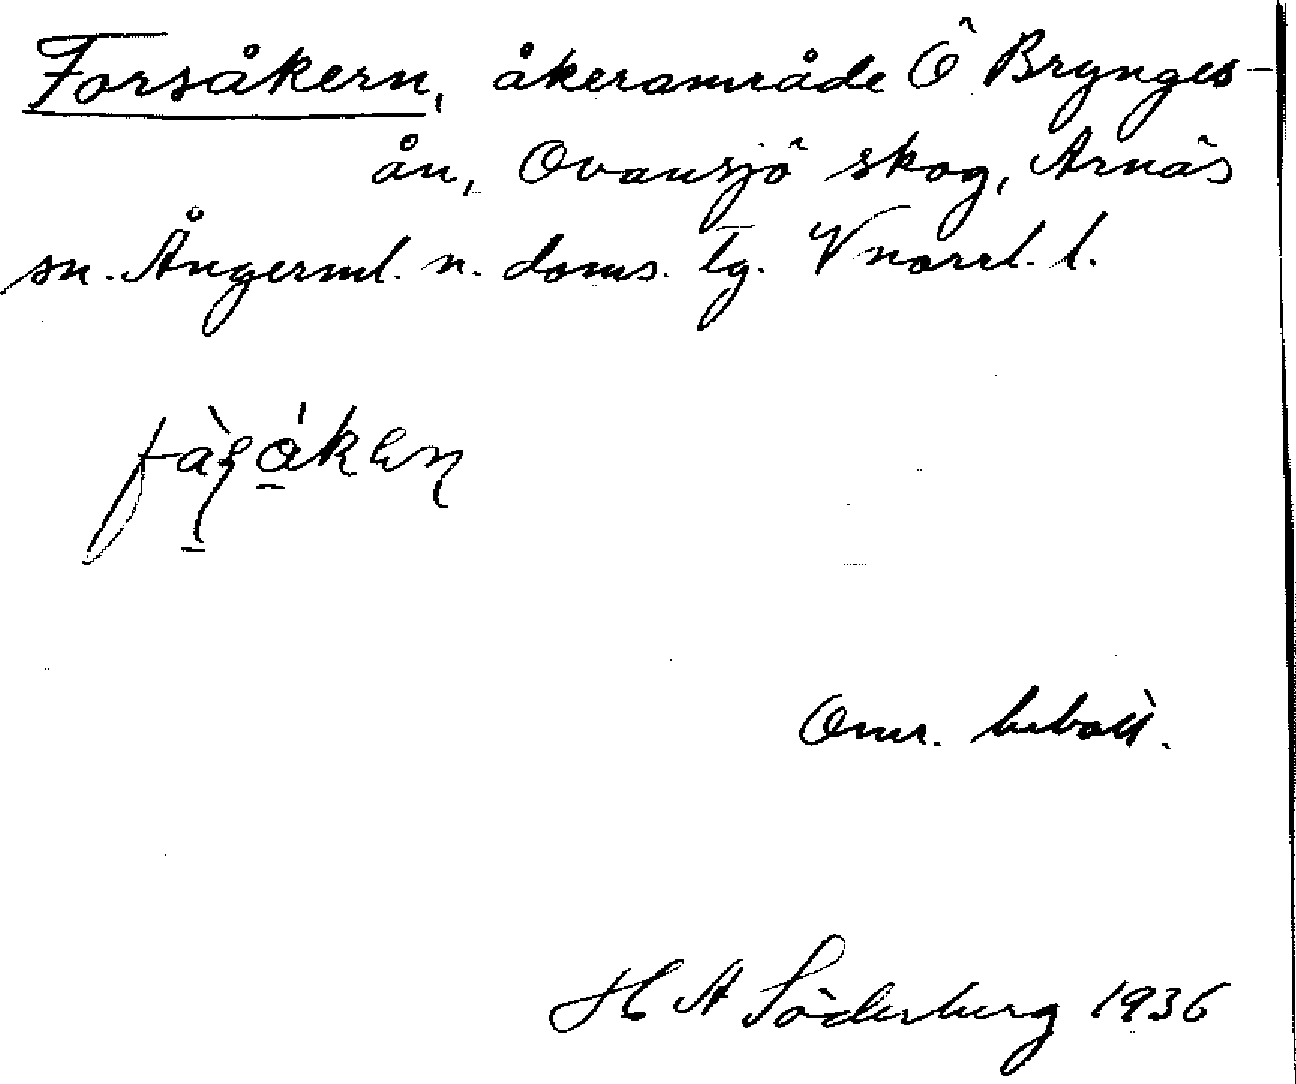 Forsåkern, åkerområde Ö Brynges-
ån, Ovansjö skog, Arnäs
sn. Ångerml. n. doms. tg. Vnorrl. l.
Omr. bebott.
H A Söderberg 1936